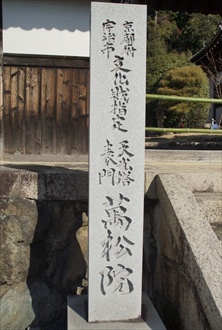 京都府
宇治市
文化財指定
天光塔
表門
萬松院